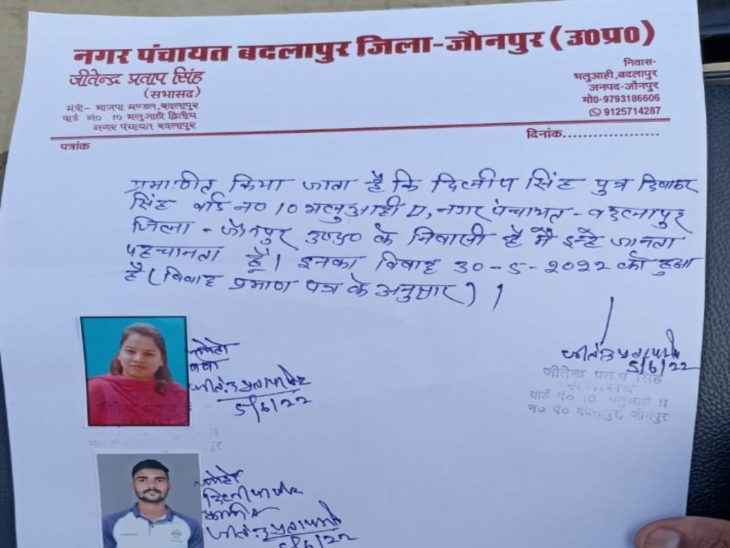 नगर पंचायत बदलापुर जिला-जौनपुर (उ0प्र0)
जीतेन्द्र प्रताप सिंह
(सभासद)
मंत्री- भाजपा मण्डल, बदलापुर
वार्ड नं0 10 भलुआही द्वितीय
नगर पंचायत बदलापुर
निवास-
भलुआही, बदलापुर
जनपद-जौनपुर
मो0-9793186606
9125714287
पत्रांक
दिनांक..................
प्रमाणित किया जाता है कि दिलीप सिंह पुत्र दिवाकर
सिंह वार्ड न० 10 भलुआही II, नगर पंचायत - बदलापुर
जिला - जौनपुर उ०प्र० के निवासी है मैं इन्हे जानता
पहचानता हूँ। इनका विवाह 30-5-2022 को हुआ
है (विवाह प्रमाण पत्र के अनुसार)।
जीतेन्द्र प्रताप सिंह
5/6/22
जीतेन्द्र प्रताप सिंह
सभासद
वार्ड नं० 10, भलुआही II
न० पं० बदलापुर, जौनपुर
फोटो
जीतेन्द्र प्रताप सिंह
5/6/22
फोटो
दिलीप सिंह
जीतेन्द्र प्रताप सिंह
5/6/22